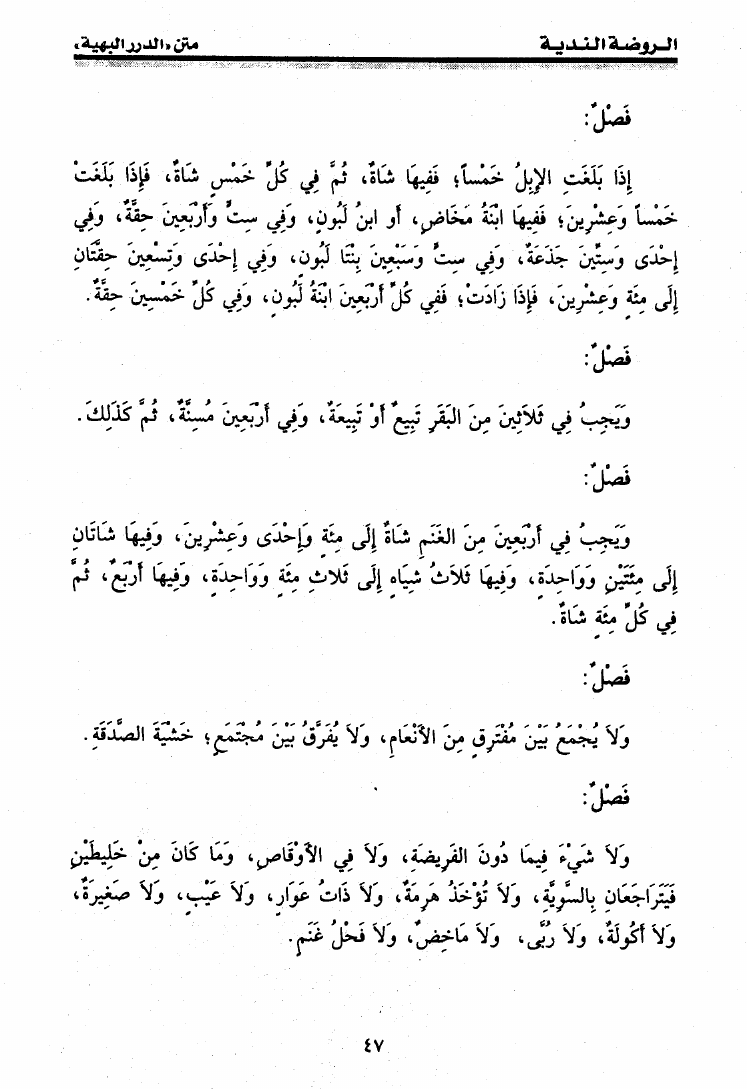 الروضة الندية
متن «الدرر البهية»
فَصْلٌ:
إِذَا بَلَغَتِ الإِبِلُ خَمْساً؛ فَفِيهَا شَاةٌ، ثُمَّ فِي كُلِّ خَمْسٍ شَاةٌ، فَإِذَا بَلَغَتْ
خَمْساً وَعِشْرِينَ؛ فَفِيهَا ابْنَةُ مَخَاضٍ، أَو ابنُ لَبُونٍ، وَفِي سِتٍّ وَأَرْبَعِينَ حِقَّةٌ، وَفِي
إِحْدَى وَسِتِّينَ جَذَعَةٌ، وَفِي سِتٍّ وَسَبْعِينَ بِنْتَا لَبُونٍ، وَفِي إِحْدَى وَتِسْعِينَ حِقَّتَانِ
إِلَى مِئَةٍ وَعِشْرِينَ، فَإِذَا زَادَتْ؛ فَفِي كُلِّ أَرْبَعِينَ ابْنَةُ لَبُونٍ، وَفِي كُلِّ خَمْسِينَ حِقَّةٌ.
فَصْلٌ:
وَيَجِبُ فِي ثَلاَثِينَ مِنَ البَقَرِ تَبِيعٌ أَوْ تَبِيعَةٌ، وَفِي أَرْبَعِينَ مُسِنَّةٌ، ثُمَّ كَذَلِكَ.
فَصْلٌ:
وَيَجِبُ فِي أَرْبَعِينَ مِنَ الغَنَمِ شَاةٌ إِلَى مِئَةٍ وَإِحْدَى وَعِشْرِينَ، وَفِيهَا شَاتَانِ
إِلَى مِئَتَيْنِ وَوَاحِدَةٍ، وَفِيهَا ثَلاَثُ شِيَاهٍ إِلَى ثَلاَثِ مِئَةٍ وَوَاحِدَةٍ، وَفِيهَا أَرْبَعٌ، ثُمَّ
فِي كُلِّ مِئَةٍ شَاةٌ.
فَصْلٌ:
وَلاَ يُجْمَعُ بَيْنَ مُفْتَرِقٍ مِنَ الأَنْعَامِ، وَلاَ يُفَرَّقُ بَيْنَ مُجْتَمَعٍ؛ خَشْيَةَ الصَّدَقَةِ.
فَصْلٌ:
وَلاَ شَيْءَ فِيمَا دُونَ الفَرِيضَةِ، وَلاَ فِي الأَوْقَاصِ، وَمَا كَانَ مِنْ خَلِيطَيْنِ
فَيَتَرَاجَعَانِ بِالسَّوِيَّةِ، وَلاَ تُؤْخَذُ هَرِمَةٌ، وَلاَ ذَاتُ عَوَارٍ، وَلاَ عَيْبٍ، وَلاَ صَغِيرَةٌ،
وَلاَ أَكُولَةٌ، وَلاَ رُبَّى، وَلاَ مَاخِضٌ، وَلاَ فَحْلُ غَنَمٍ.
٤٧